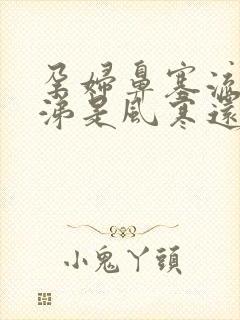 孕婦鼻塞流
涕是風寒還
小鬼丫頭